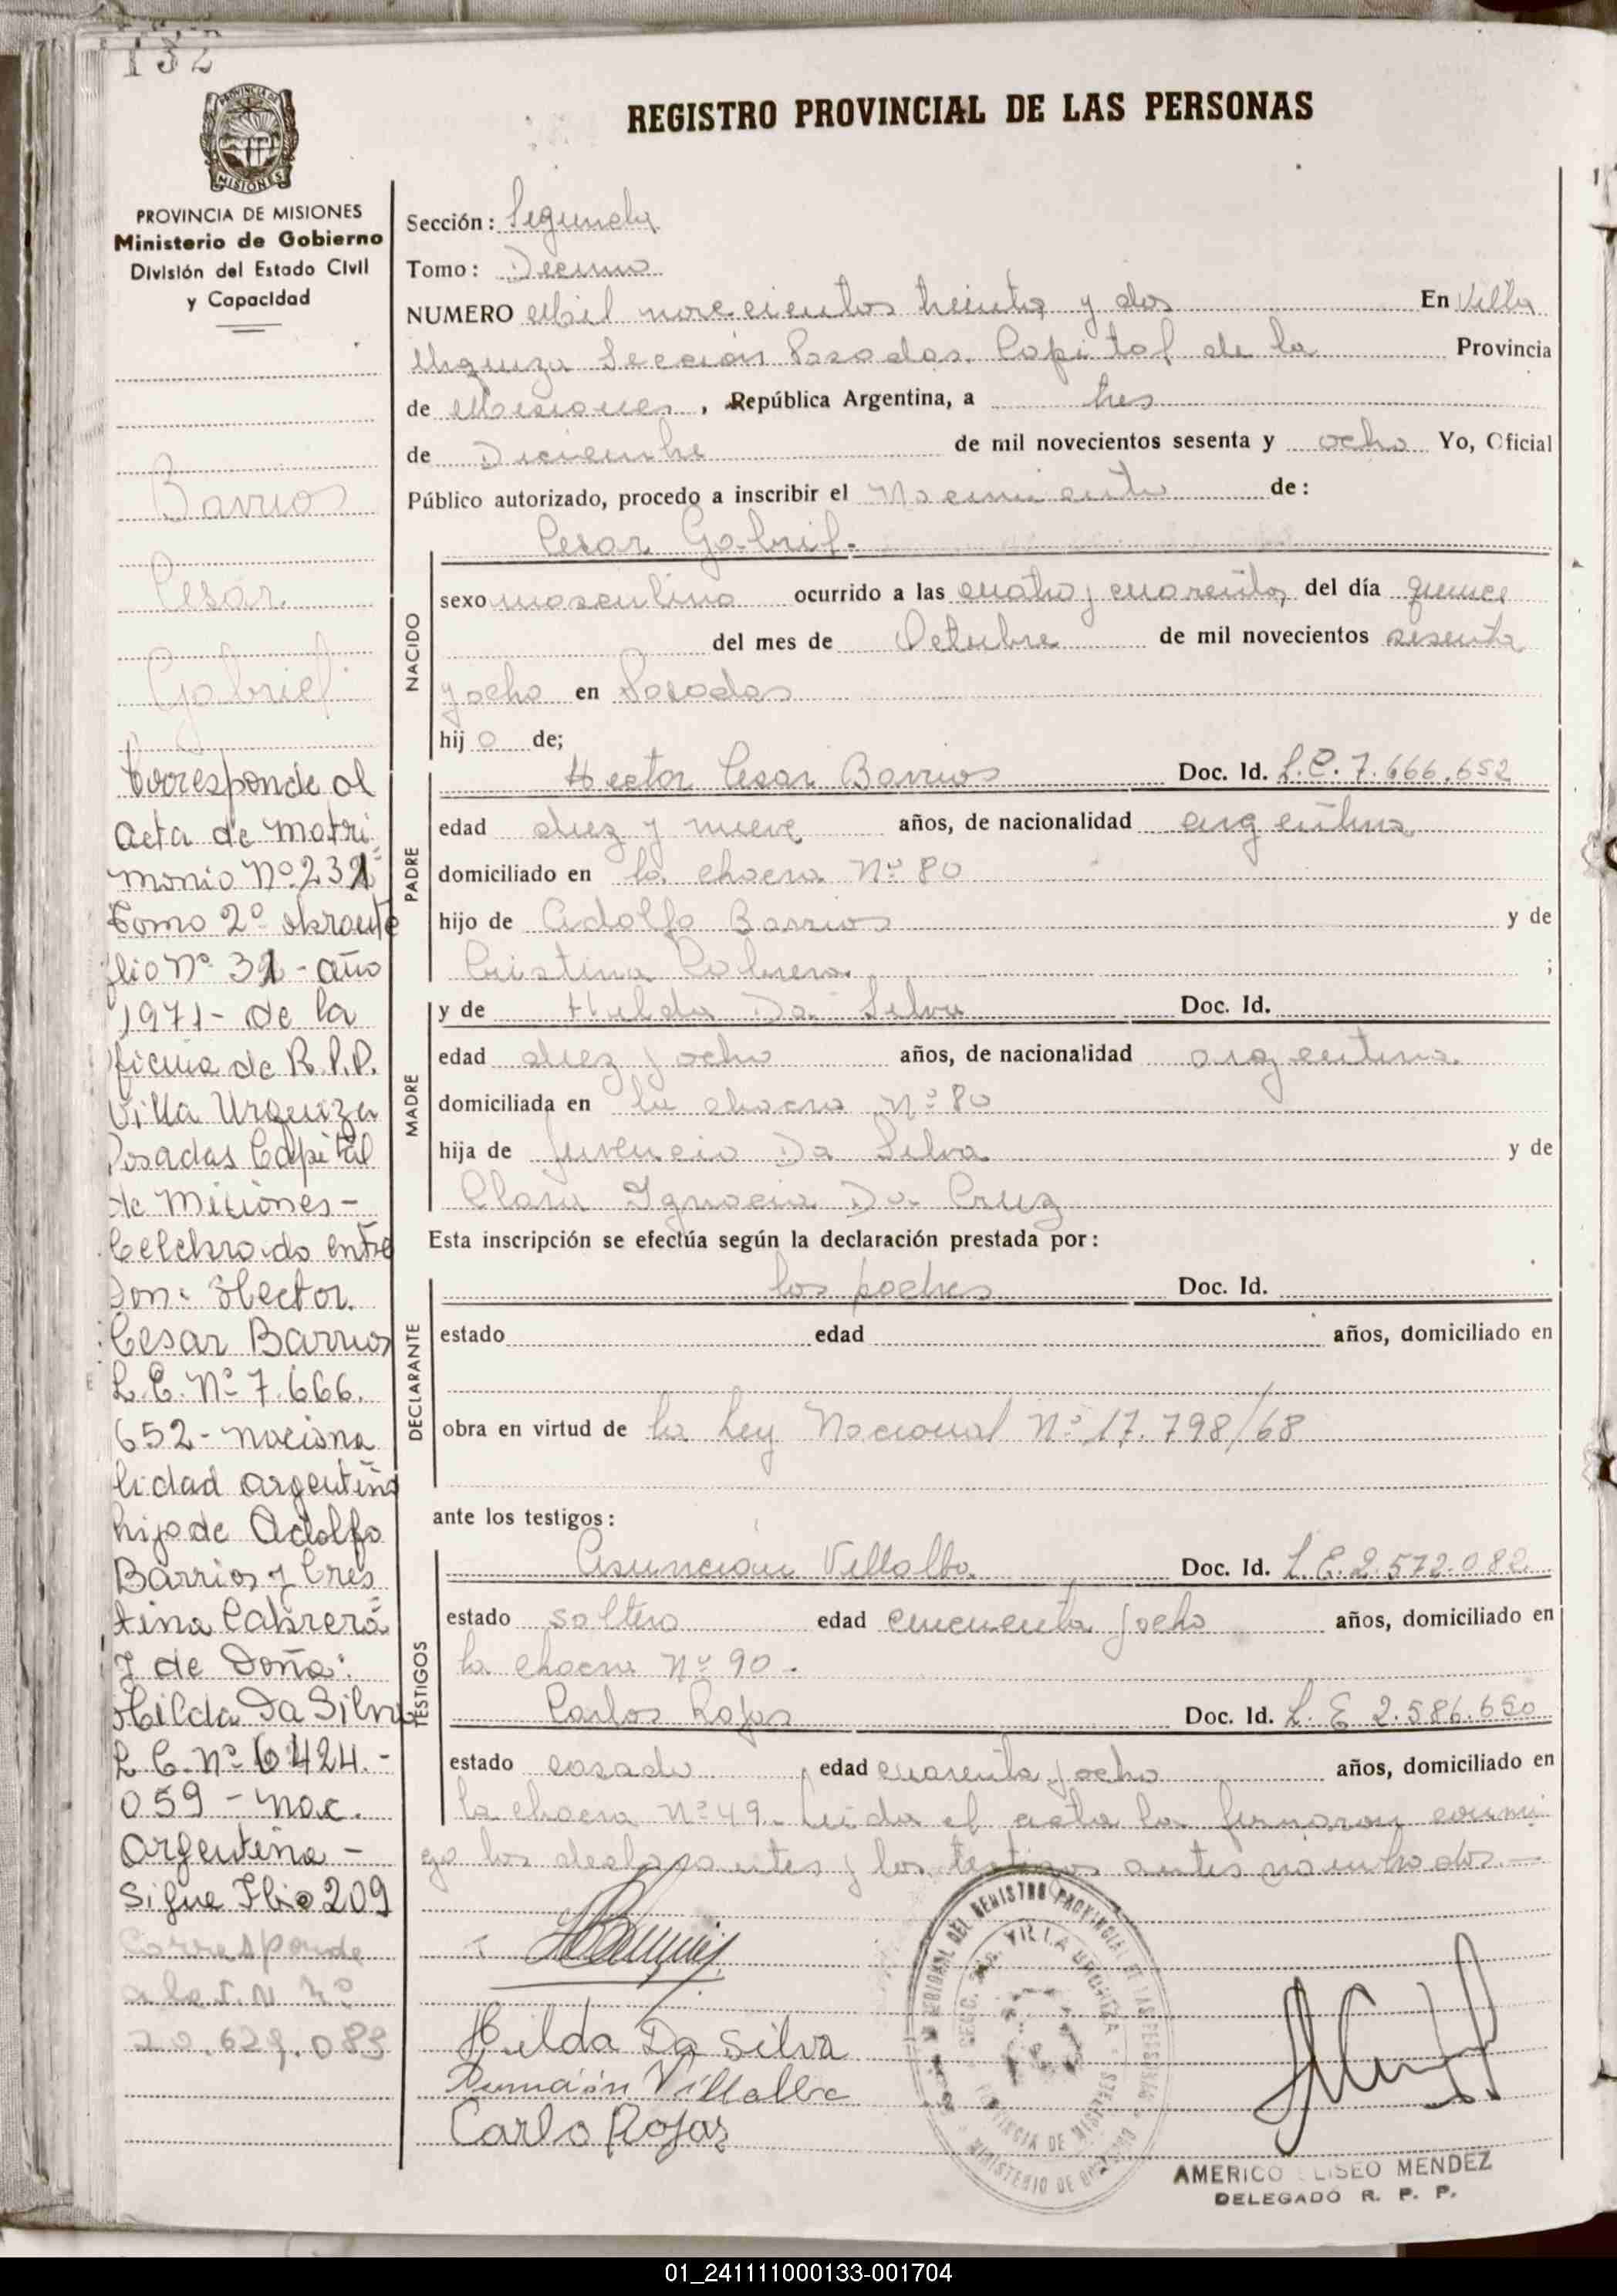 132
PROVINCIA DE MISIONES
REGISTRO PROVINCIAL DE LAS PERSONAS
PROVINCIA DE MISIONES
Ministerio de Gobierno
División del Estado Civil
y Capacidad
Barrios
Cesar
Gabriel
Corresponde al
acta de matri
monio Nº 231
Tomo 2º
folio Nº 31 - año
1971 - de la
oficina de R.P.P.
Villa Urquiza
Posadas Capital
de Misiones -
Celebrado entre
Don: Hector
Cesar Barrios
L.E. Nº 7.666.
652 - naciona
lidad argentina
hijo de Adolfo
Barrios y Cris
tina Cabrera
y de Doña:
Hilda Da Silva
L.C. Nº 6424.-
059 - nac.
Argentina -
Sigue Flio 209
Corresponde
a la Nº
20.629.083
Sección: Segunda
Tomo: Decimo
NUMERO Mil novecientos treinta y dos En Villa
Urquiza Sección Posadas Capital de la Provincia
de Misiones, República Argentina, a tres
de Diciembre de mil novecientos sesenta y ocho Yo, Oficial
Público autorizado, procedo a inscribir el Nacimiento de:
Cesar Gabriel.
NACIDO
sexo masculino ocurrido a las cuatro y cuarenta, del día quince
del mes de Octubre de mil novecientos sesenta
y ocho en Posadas
hijo de;
PADRE
Hector Cesar Barrios Doc. Id. L.E. 7.666.652
edad diez y nueve años, de nacionalidad argentina
domiciliado en la chacra Nº 80
hijo de Adolfo Barrios y de
Cristina Cabrera ;
MADRE
y de Hilda Da Silva Doc. Id.
edad diez y ocho años, de nacionalidad argentina.
domiciliada en la chacra Nº 80
hija de Juvencio Da Silva y de
Clara Ignacia Da Cruz
Esta inscripción se efectúa según la declaración prestada por:
DECLARANTE
los padres Doc. Id.
estado edad años, domiciliado en
obra en virtud de la Ley Nacional Nº 17.798/68
ante los testigos:
TESTIGOS
Asuncion Villalba Doc. Id. L.E. 2.572.082
estado soltero edad cincuenta y ocho años, domiciliado en
la chacra Nº 90.-
Carlos Rojas Doc. Id. L.E 2.586.690
estado casado edad cuarenta y ocho años, domiciliado en
la chacra Nº 49. Leida el acta la firmaron conmi
go los declarantes y los testigos antes nombrados.-
Hilda Da Silva
Asunción Villalba
Carlo Rojas
REGIONAL DEL REGISTRO PROVINCIAL DE LAS PERSONAS
SECC. VILLA URQUIZA
PROVINCIA DE MISIONES
MINISTERIO DE GOBIERNO
AMERICO ELISEO MENDEZ
DELEGADO R. P. P.
01_241111000133-001704